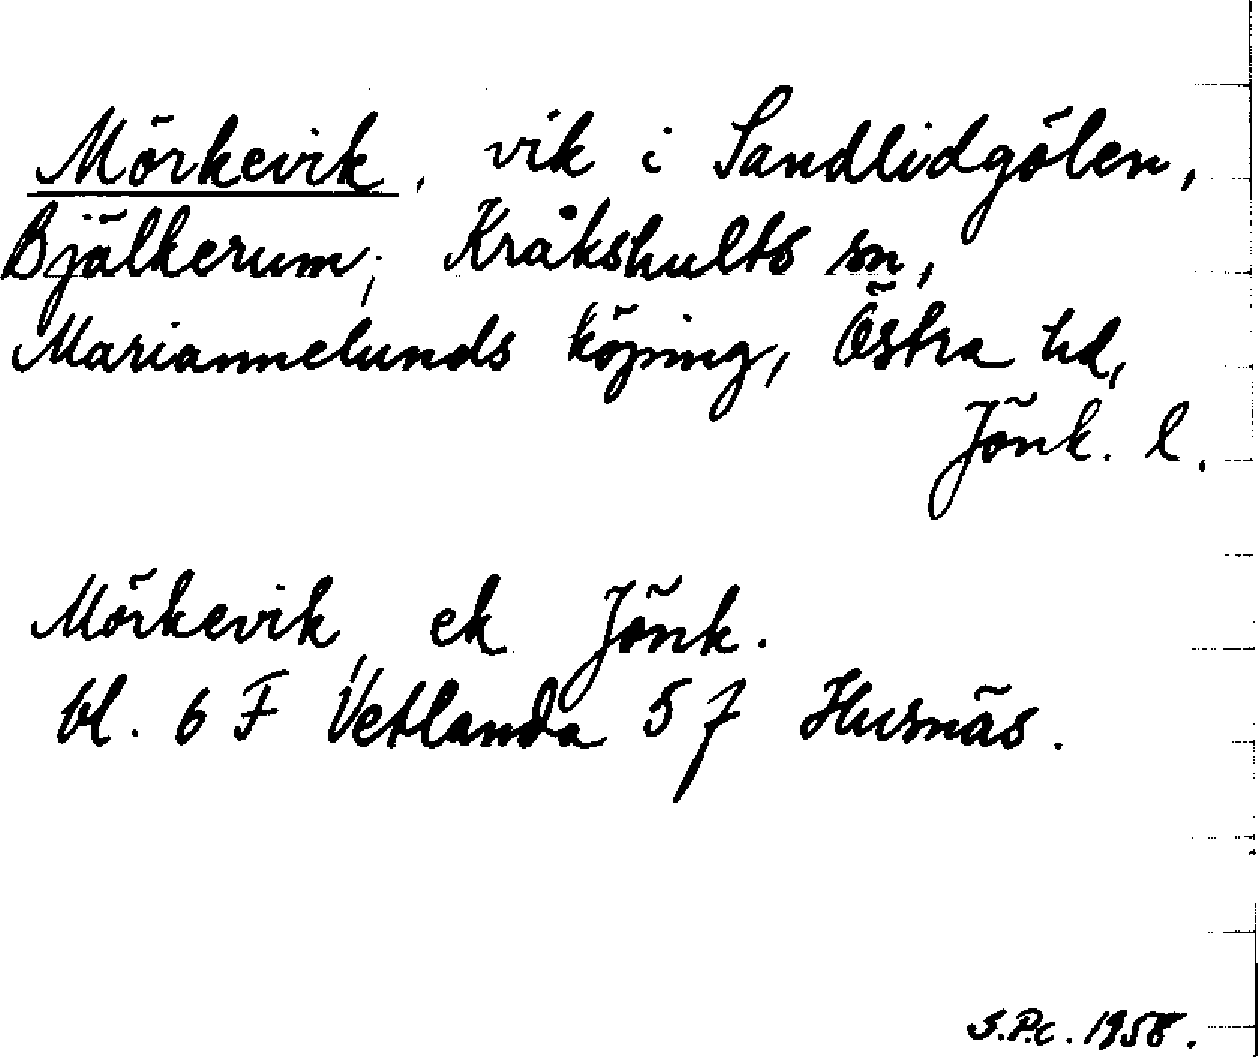 Mörkevik, vik i Sandlidgölen,
Bjälkerum, Kråkshults sn,
Mariannelunds köping, Östra hd,
Jönk. l.
Mörkevik, ek Jönk.
bl. 6 F Vetlanda 5 f Husnäs.
S.P.c. 1958.